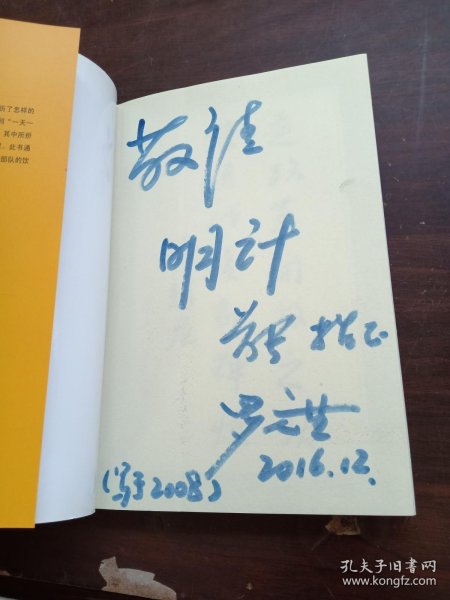 历了怎样的
“一天一
其中所折
此书通
部队的饮
敬请
明计
指正
罗元生
2016.12.
(写于2008)
孔夫子旧书网
www.kongfz.com